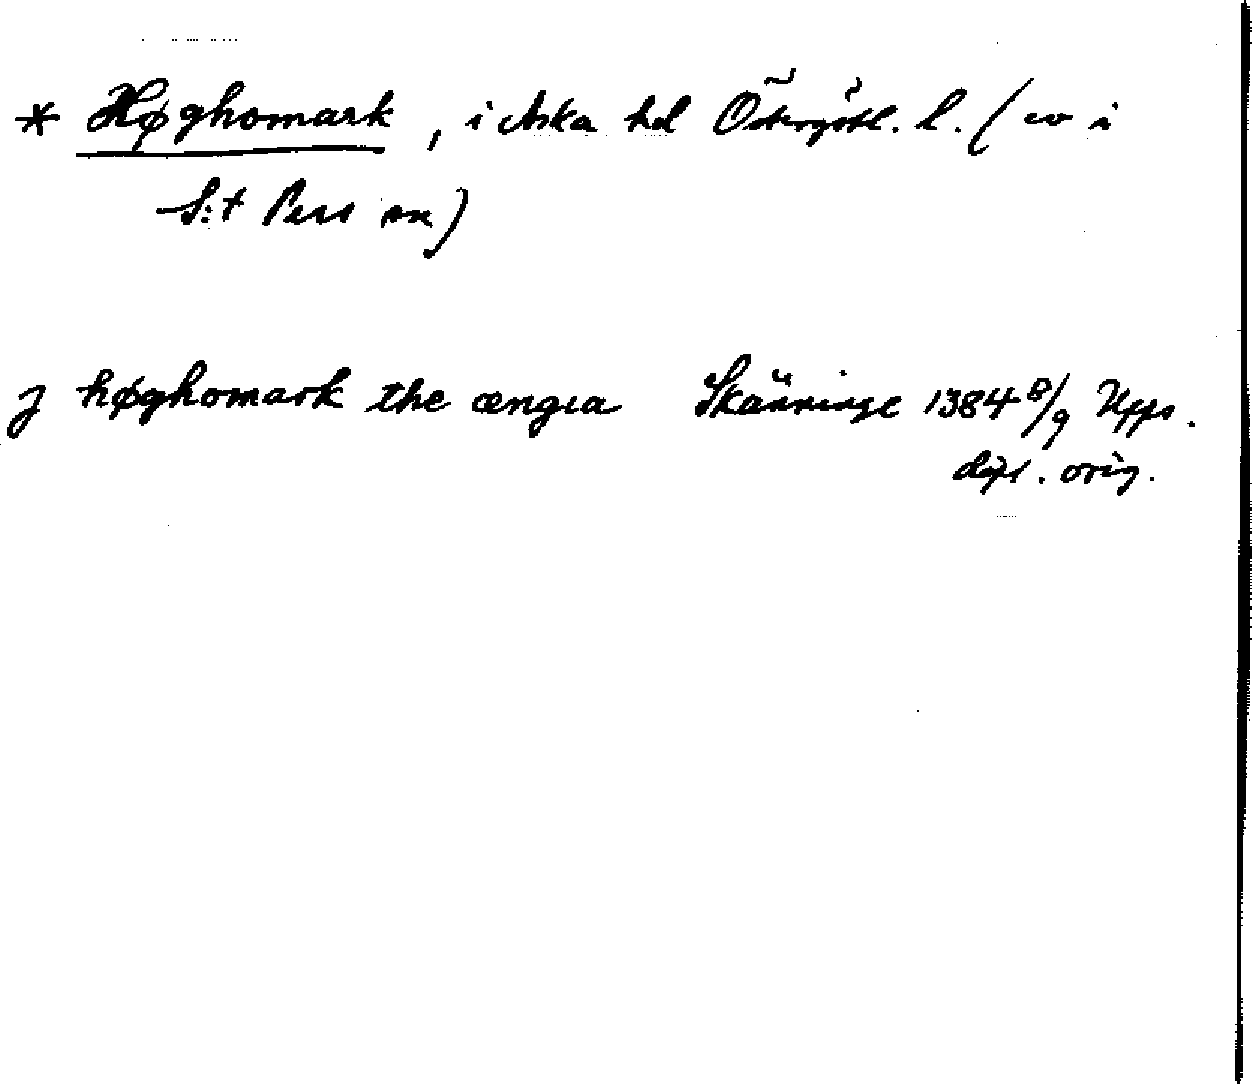 * Høghomark, i Aska hd Östergötl. l. (ev i
S:t Pers sn)
J høghomark the ængia Skänninge 1384 8/9 Upps.
dipl. orig.